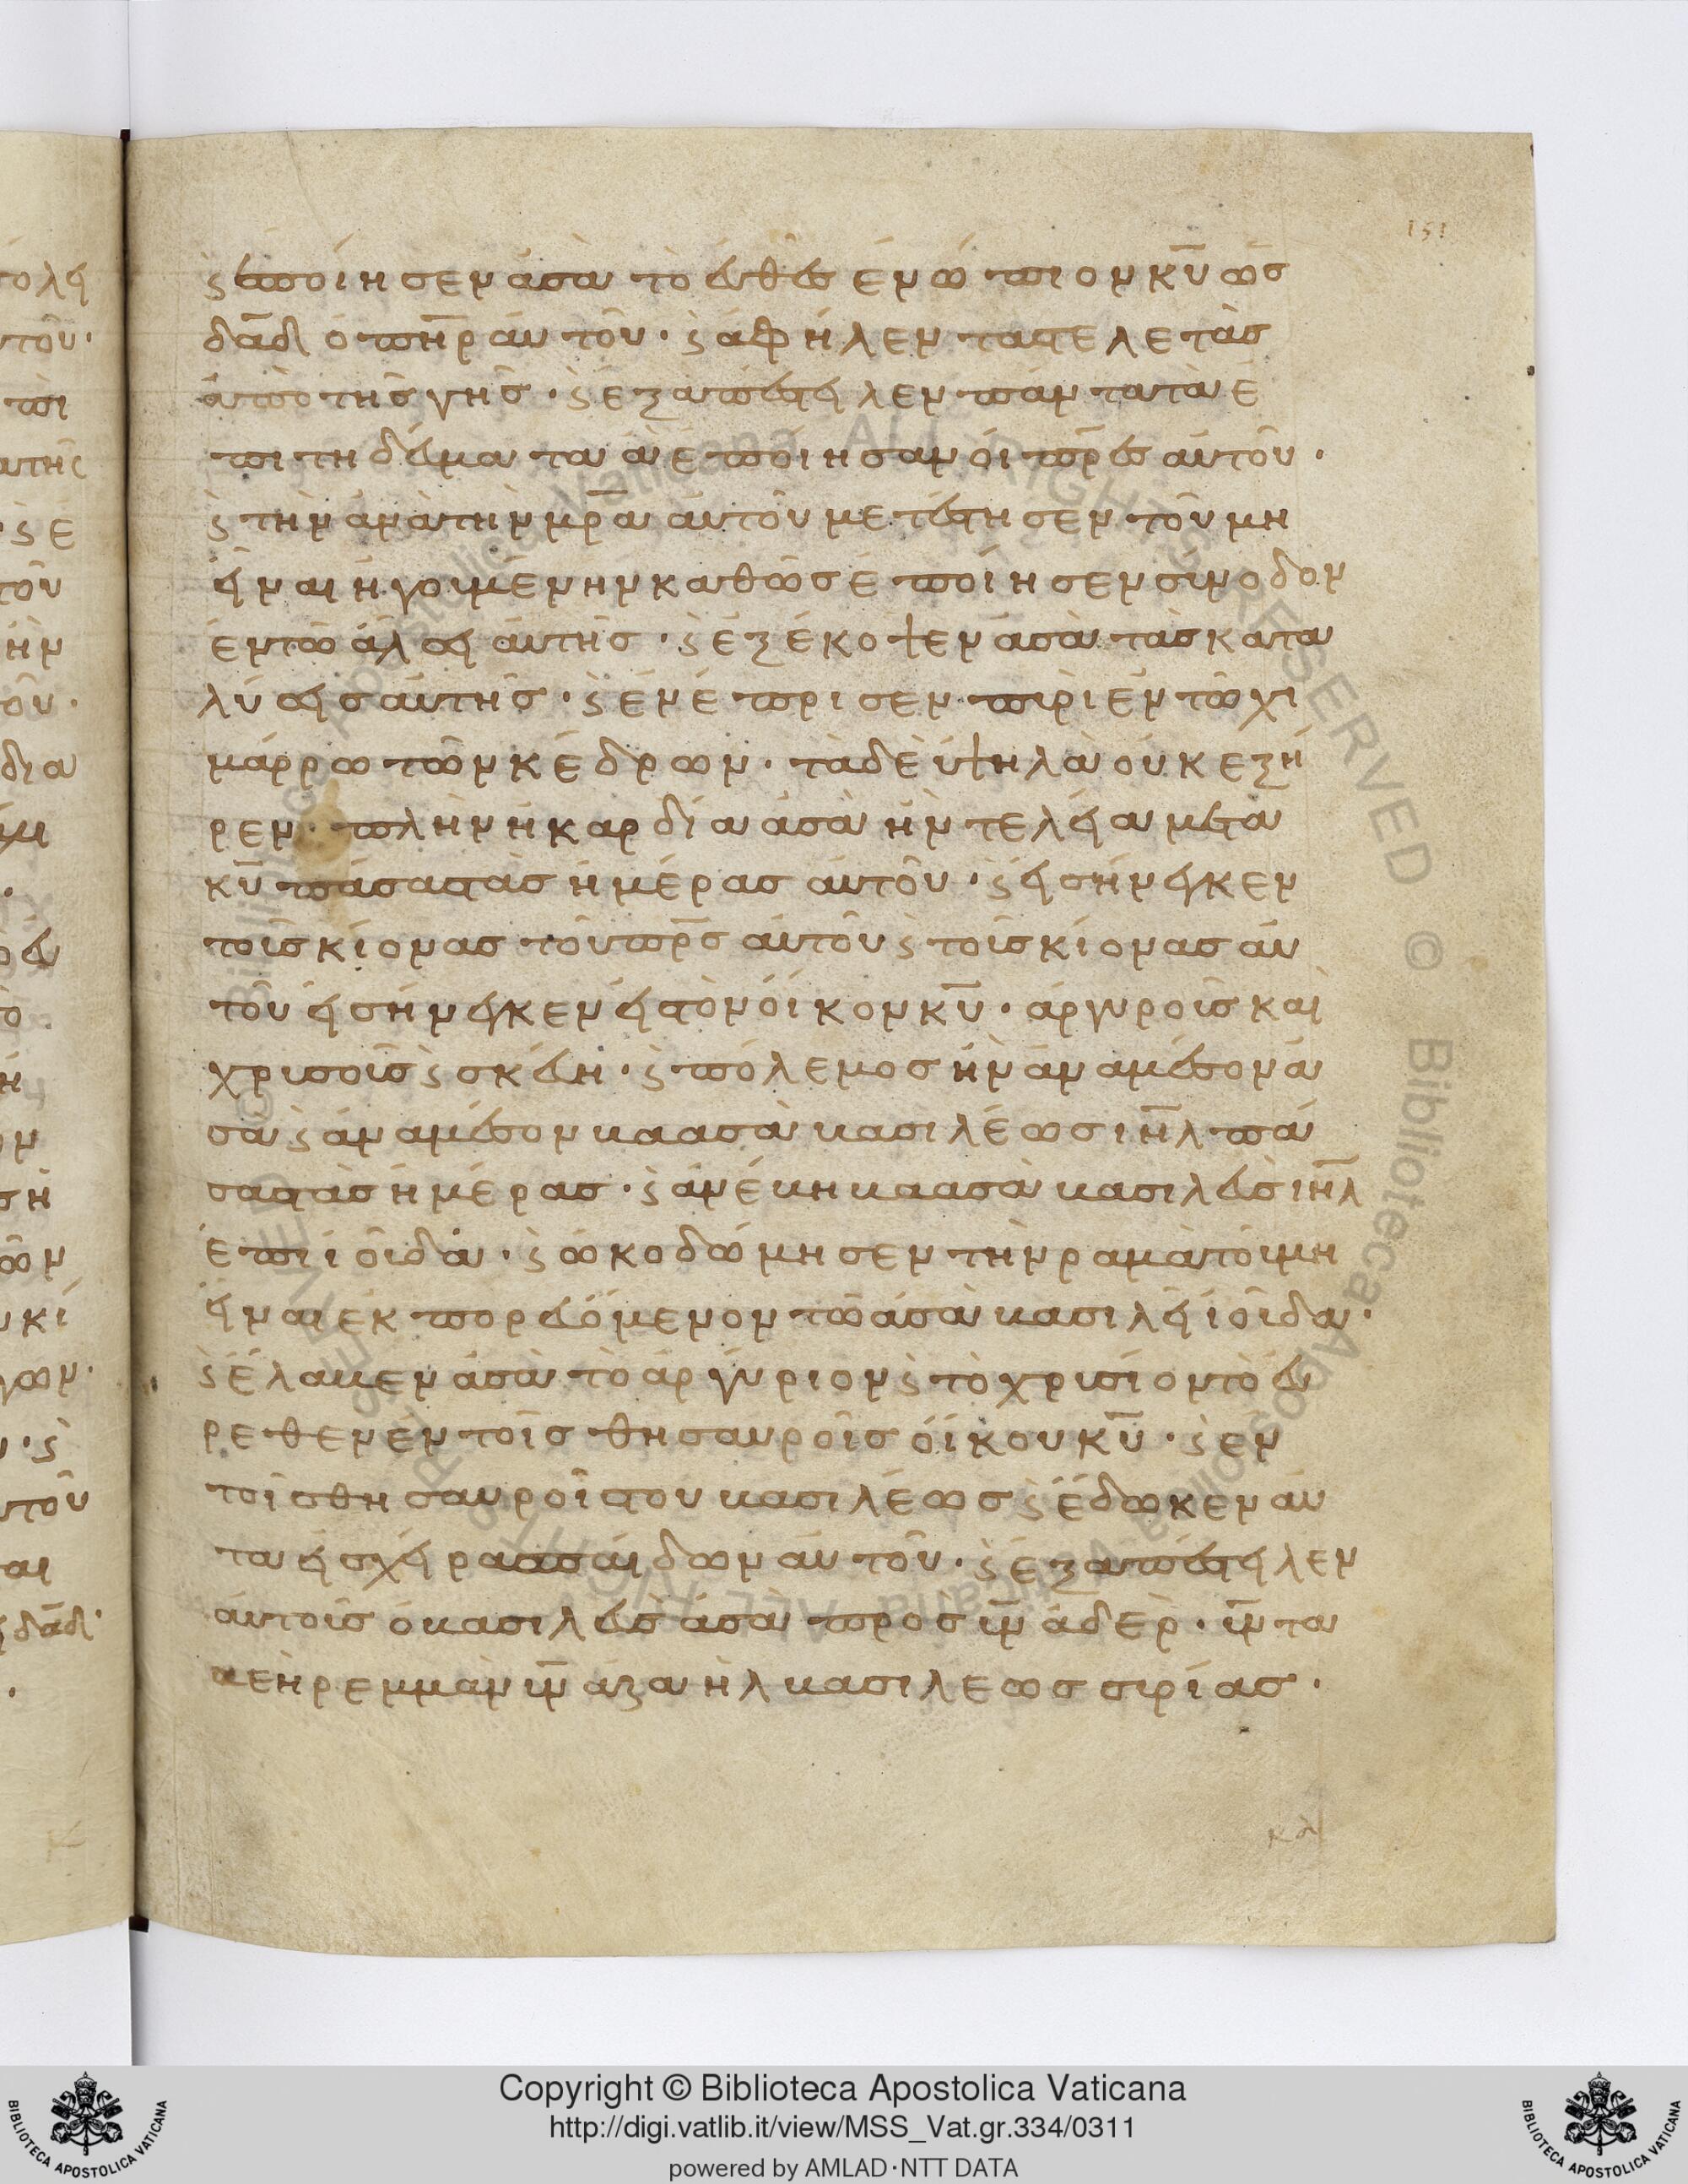 151
ϛ ἐποίησεν ἀσὰ τὸ ἐυθὲσ ἐνώπιον κ̅υ̅ ὡσ
δ̅α̅δ̅ ὁ π̅η̅ρ̅ ἀυτοῦ · ϛ ἀφήλεν τὰσ τελετὰσ
ἀπὸ τῆσ γῆσ · ϛ ἐξαπέστειλεν πάντα τὰ ἐ
πιτηδέυματα ἁ ἐποίησαν ὁι π̅ρ̅ε̅σ̅ ἀυτοῦ ·
ϛ τὴν ἀνὰ τὴν μ̅ρ̅α̅ ἀυτοῦ μετέστησεν τοῦ μη
εἶναι ἡγουμένην καθῶσ ἐποίησεν σύνοδον
ἐν τῶ ἄλσει ἀυτῆσ · ϛ ἐξέκοψεν ἀσὰ τὰσ κατα
λύσεισ ἀυτῆσ · ϛ ἐνέπρισεν πυρὶ ἐν τῶ χι
μάρρω τῶν κέδρων · τὰ δὲ ὑψηλὰ ὀυκ εξή
ρεν · πλὴν ἡ καρδία ἀσὰ ἦν τελεία μετα
κ̅υ̅ πάσασ τὰσ ἡμέρασ ἀυτοῦ · ϛ εἰσήνεγκεν
τοὺσ κίονασ τοῦ π̅ρ̅σ̅ ἀυτοῦ ϛ τοὺσ κίονασ ἀυ
τοῦ εἰσήνεγκεν εἰσ τὸν ὄικον κ̅υ̅ · ἀργυροῦσ και
χρυσοῦσ ϛ σκέυη · ϛ πόλεμοσ ἦν ἀναμέσον ἀ
σὰ ϛ ἀναμέσον βαασὰ βασιλέωσ ι̅η̅λ̅ πά
σασ τὰσ ἡμέρασ · ϛ ἀνέβη βαασὰ βασιλεὺσ ι̅η̅λ̅
ἐπὶ ἰοῦδα · ϛ ὠκοδώμησεν τὴν ραμὰ τοῦ μη
εἶναι ἐκπορευόμενον τῶ ἀσὰ βασιλεῖ ἰοῦδα ·
ϛ ἔλαβεν ἀσὰ τὸ ἀργύριον ϛ τὸ χρυσίον τὸ ἑυ
ρεθὲν ἐν τοῖσ θησαυροῖσ ὄικου κ̅υ̅ · ϛ εν
τοῖσ θησαυροῖσ του βασιλέωσ ϛ ἔδωκεν ἀυ
τα εἰσ χείρασ παίδων ἀυτοῦ · ϛ ἐξαπέστειλεν
ἀυτοὺσ ὁ βασιλεὺσ ἀσὰ προσ υ̅ν̅ ἄδερ · υ̅ν̅ τα
βεὴρεμμὰν υ̅ν̅ ἀζαὴλ βασιλεωσ συρίασ ·
Copyright © Biblioteca Apostolica Vaticana
http://digi.vatlib.it/view/MSS_Vat.gr.334/0311
powered by AMLAD·NTT DATA